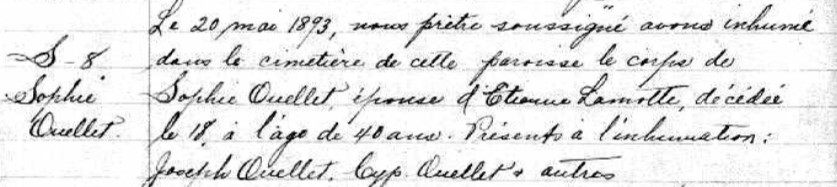 Le 20 mai 1893, nous prêtre soussigné avons inhumé
S-8 dans le cimetière de cette paroisse le corps de
Sophie Sophie Ouellet, épouse d'Etienne Lamotte, décédée
Ouellet. le 18, à l'âge de 40 ans. Présents à l'inhumation:
Joseph Ouellet, Cyp. Ouellet & autres